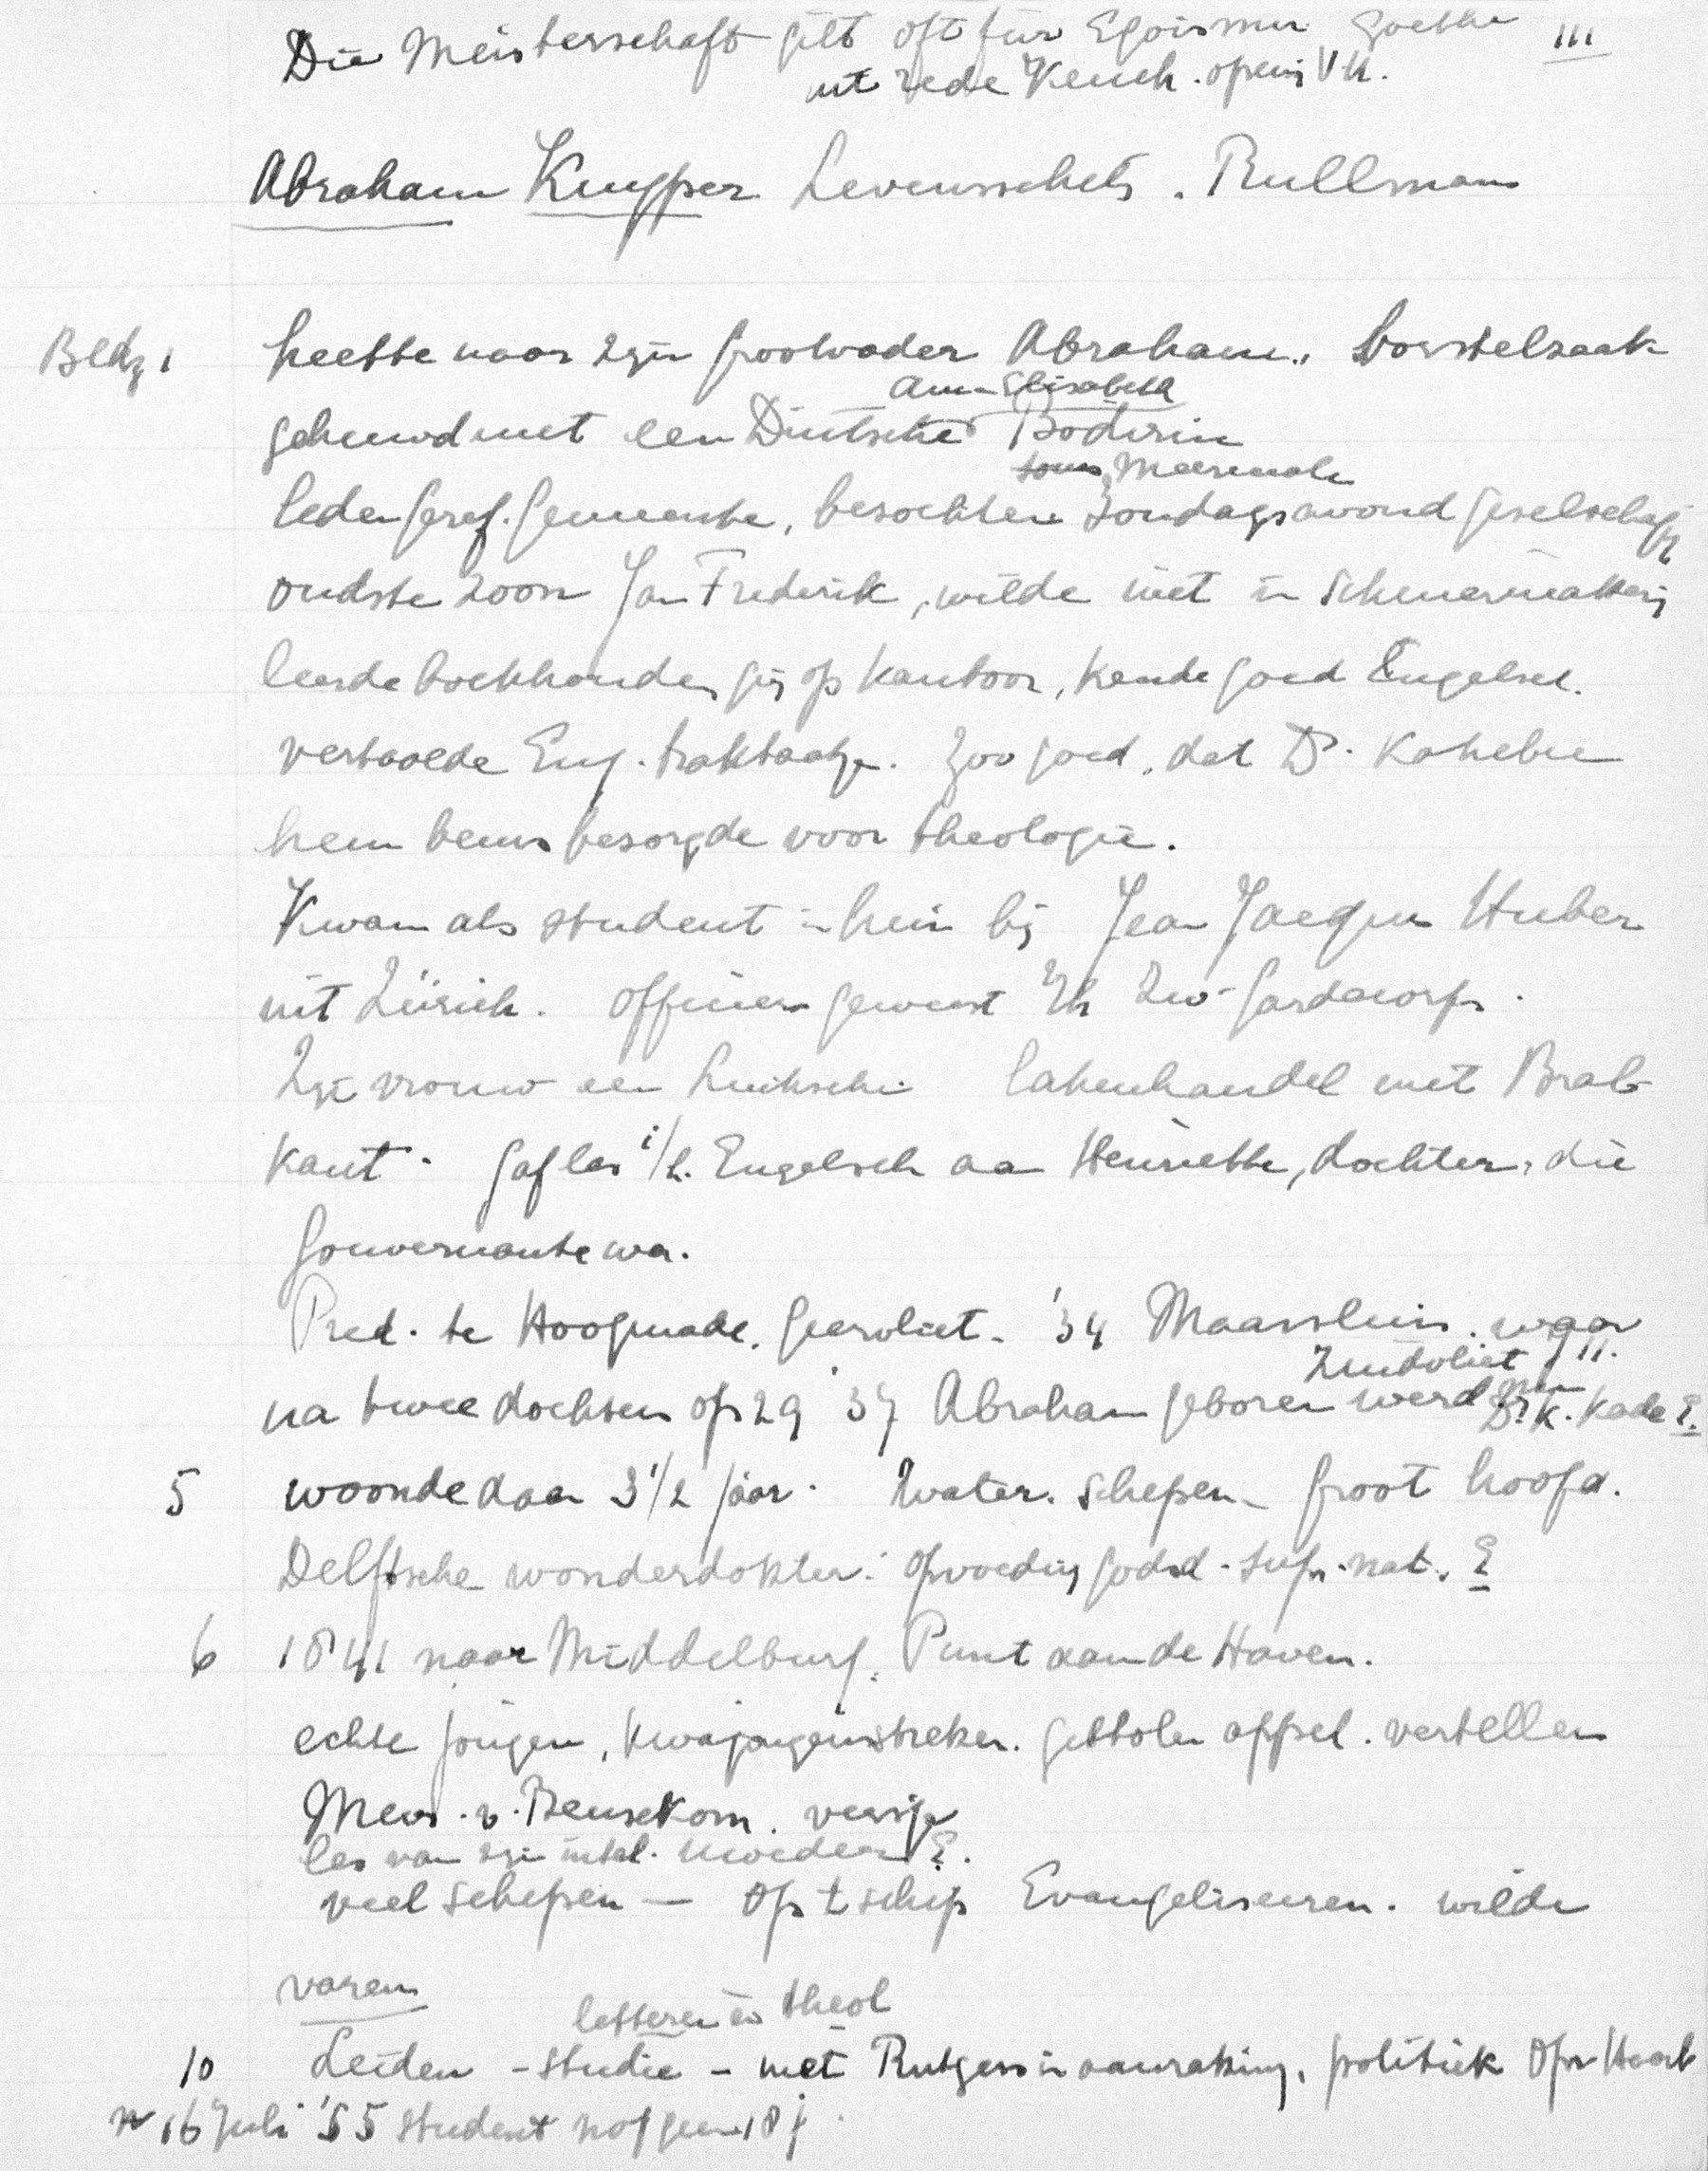 Die Meisterschaft gilt oft für Egoismus Goethe III
uit rede Keuch. opening VU.
Abraham Kuyper Levensschets. Rullmann
Bldz 1 heette naar zijn grootvader Abraham, borstelzaak
Anna Elisabeth
gehuwd met een Duitsche Böderin
soms Meerendeels
leden Geref. Gemeente, bezochten Zondagsavond gezelschap
oudste zoon Jan Frederik, wilde niet in schuiermakerij
leerde boekhouden ging op kantoor, kende goed Engelsch.
vertaalde Eng. traktaatje. Zoo goed, dat Ds.
hem beurs bezorgde voor theologie.
Kwam als student in huis bij Jean Jacques Huber
uit Zürich. Officier geweest Zw. Gardecorps.
Zijn vrouw een Luiksche lakenhandel met Brab
kant. Gaf les i/h. Engelsch aan Henriette, dochter, die
Gouvernante was.
Pred. te Hoogmade, Geervliet - '34 Maassluis. waar
Zuidvliet 711.
na twee dochters op 29 '37 Abraham geboren werd K. Kade E.
5 woonde daar 3 1/2 jaar. Water. Schepen - groot hoofd.
Delftsche wonderdokter. opvoeding godsd. - supr. nat. E
6 1841 naar Middelburg. Punt aan de Haven.
echte jongen, kwajongensstreken. gestolen appel. vertellen
Mevr. v. Beusekom. versje
les van zijn intel. moeder E.
veel schepen — Op t schip Evangeliseeren. wilde
varen
letteren en theol
10 Leiden - studie - met Rutgers in aanraking, politiek Opr Haarl
16 Juli '55 student nog geen 18 j.